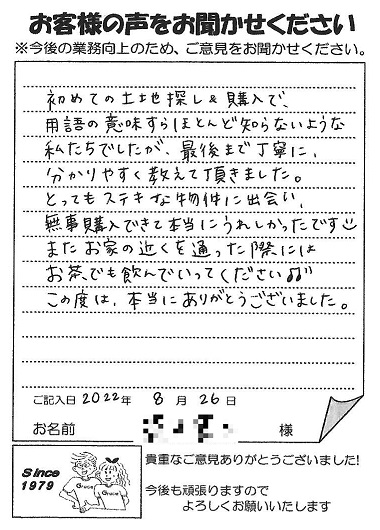 お客様の声をお聞かせください
※今後の業務向上のため、ご意見をお聞かせください。
初めての土地探し&購入で、
用語の意味すらほとんど知らないような
私たちでしたが、最後まで丁寧に、
分かりやすく教えて頂きました。
とってもステキな物件に出会い、
無事購入できて本当にうれしかったです
またお家の近くを通った際には
お茶でも飲んでいってください♫
この度は、本当にありがとうございました。
ご記入日 2022年 8月 26日
お名前 様
Since
1979
Grace
Grace
貴重なご意見ありがとうございました!
今後も頑張りますので
よろしくお願いいたします